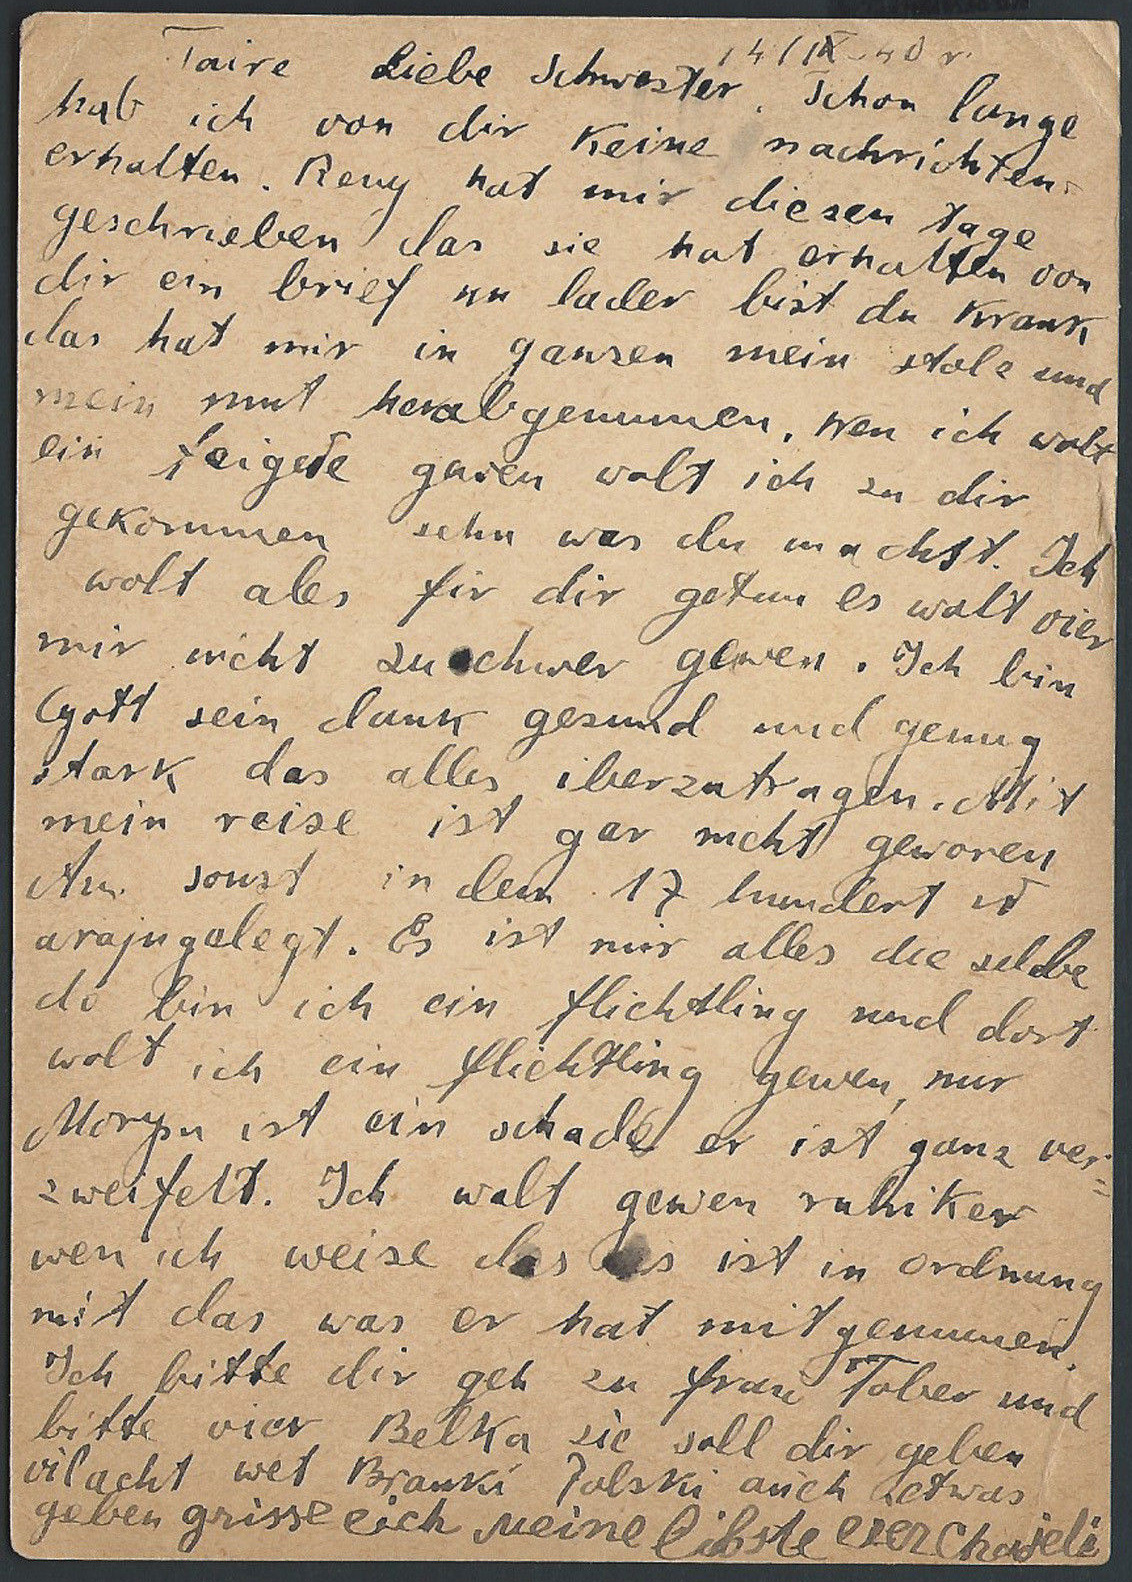 14/IX-40 r.
Taire Liebe Schwester. Schon lange
hab ich von dir keine nachrichten
erhalten. Reny hat mir diesen tage
geschrieben das sie hat erhalten von
dir ein brief un lader bist du krank
das hat mir in gansen mein stole und
mein mut herabgenummen. wen ich wolt
ein feigele gewen wolt ich zu dir
gekommen sehn was du machst. Ich
wolt ales fir dir getun es wolt vier
mir nicht zu schwer gewen. Ich bin
Gott sein dank gesund und genug
stark das alles iberzutragen. Mit
mein reise ist gar nicht geworen
sonst in dem 17 hundert
arajngelegt. Es ist mir alles die selbe
do bin ich ein flichtling und dort
wolt ich ein flichtling gewen, nur
ist ein schade er ist ganz ver=
zweifelt. Ich wolt gewen ruhiker
wen ich weise das es ist in ordnung
mit das was er hat mitgenummen.
Ich bitte dir geh zu frau Tober und
bitte vier Belka sie soll dir geben
vilacht wet Branki Polski auch etwas
geben grisse eich meine libste eier Chajele